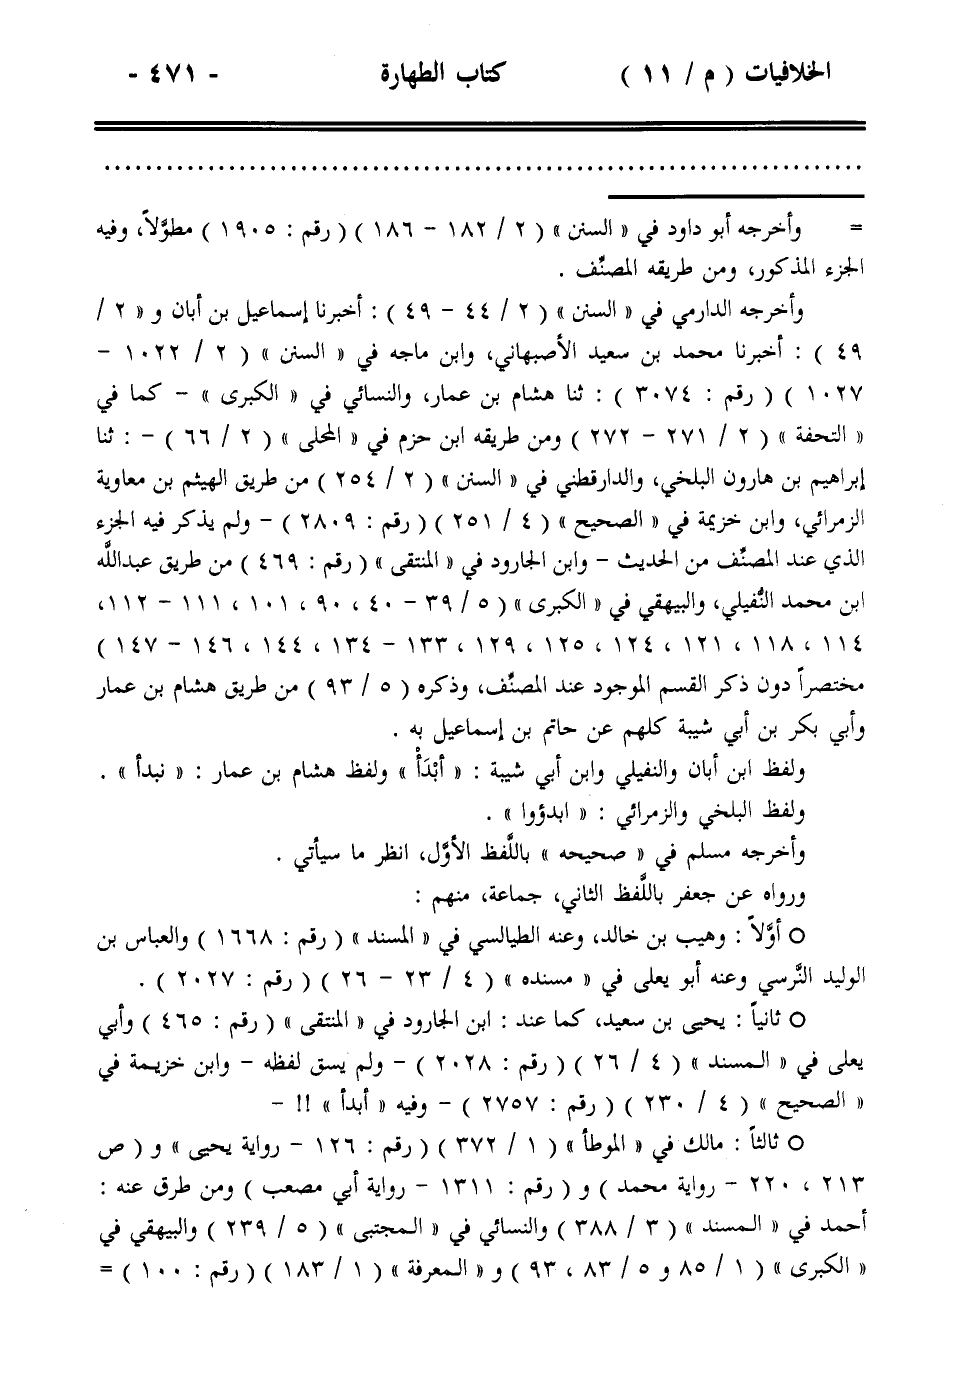 الخلافيات ( م / ١١ ) كتاب الطهارة - ٤٧١ -
................................................................
= وأخرجه أبو داود في « السنن » ( ٢ / ١٨٢ - ١٨٦ ) ( رقم : ١٩٠٥ ) مطوَّلاً، وفيه
الجزء المذكور، ومن طريقه المصنِّف .
وأخرجه الدارمي في « السنن » ( ٢ / ٤٤ - ٤٩ ) : أخبرنا إسماعيل بن أبان و « ٢ /
٤٩ ) : أخبرنا محمد بن سعيد الأصبهاني، وابن ماجه في « السنن » ( ٢ / ١٠٢٢ -
١٠٢٧ ) ( رقم : ٣٠٧٤ ) : ثنا هشام بن عمار، والنسائي في « الكبرى » - كما في
« التحفة » ( ٢ / ٢٧١ - ٢٧٢ ) ومن طريقه ابن حزم في « المحلى » ( ٢ / ٦٦ ) - : ثنا
إبراهيم بن هارون البلخي، والدارقطني في « السنن » ( ٢ / ٢٥٤ ) من طريق الهيثم بن معاوية
الزمرائي، وابن خزيمة في « الصحيح » ( ٤ / ٢٥١ ) ( رقم : ٢٨٠٩ ) - ولم يذكر فيه الجزء
الذي عند المصنِّف من الحديث - وابن الجارود في « المنتقى » ( رقم : ٤٦٩ ) من طريق عبدالله
ابن محمد النُّفيلي، والبيهقي في « الكبرى » ( ٥ / ٣٩ - ٤٠ ، ٩٠ ، ١٠١ ، ١١١ - ١١٢،
١١٤ ، ١١٨ ، ١٢١ ، ١٢٤ ، ١٢٥ ، ١٢٩ ، ١٣٣ - ١٣٤ ، ١٤٤ ، ١٤٦ - ١٤٧ )
مختصراً دون ذكر القسم الموجود عند المصنِّف، وذكره ( ٥ / ٩٣ ) من طريق هشام بن عمار
وأبي بكر بن أبي شيبة كلهم عن حاتم بن إسماعيل به .
ولفظ ابن أبان والنفيلي وابن أبي شيبة : « أبْدَأْ » ولفظ هشام بن عمار : « نبدأ » .
ولفظ البلخي والزمرائي : « ابدؤوا » .
وأخرجه مسلم في « صحيحه » باللَّفظ الأوَّل، انظر ما سيأتي .
ورواه عن جعفر باللَّفظ الثاني، جماعة، منهم :
○ أوَّلاً : وهيب بن خالد، وعنه الطيالسي في « المسند » ( رقم : ١٦٦٨ ) والعباس بن
الوليد النَّرسي وعنه أبو يعلى في « مسنده » ( ٤ / ٢٣ - ٢٦ ) ( رقم : ٢٠٢٧ ) .
○ ثانياً : يحيى بن سعيد، كما عند : ابن الجارود في « المنتقى » ( رقم : ٤٦٥ ) وأبي
يعلى في « المسند » ( ٤ / ٢٦ ) ( رقم : ٢٠٢٨ ) - ولم يسق لفظه - وابن خزيمة في
« الصحيح » ( ٤ / ٢٣٠ ) ( رقم : ٢٧٥٧ ) - وفيه « أبدأ » !! -
○ ثالثاً : مالك في « الموطأ » ( ١ / ٣٧٢ ) ( رقم : ١٢٦ - رواية يحيى » و ( ص
٢١٣ ، ٢٢٠ - رواية محمد ) و ( رقم : ١٣١١ - رواية أبي مصعب ) ومن طرق عنه :
أحمد في « المسند » ( ٣ / ٣٨٨ ) والنسائي في « المجتبى » ( ٥ / ٢٣٩ ) والبيهقي في
« الكبرى » ( ١ / ٨٥ و ٥ / ٨٣ ، ٩٣ ) و « المعرفة » ( ١ / ١٨٣ ) ( رقم : ١٠٠ ) =